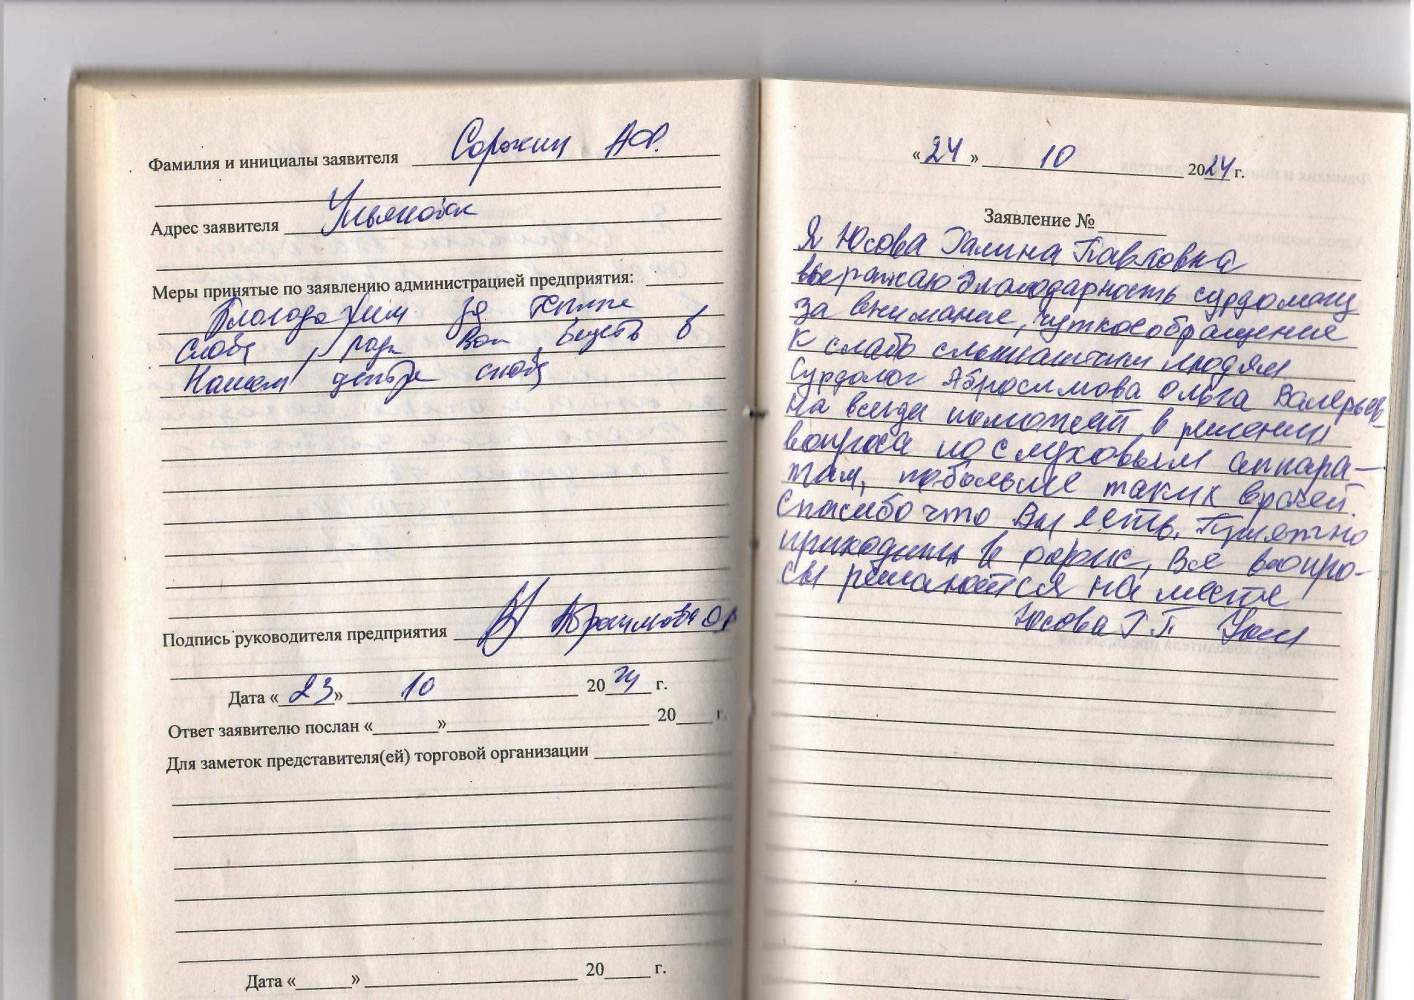 Фамилия и инициалы заявителя Сорокин А.Ф.
Адрес заявителя Ульяновск
Меры принятые по заявлению администрацией предприятия:
Благодарим за теплые
слова, рады Вас видеть в
нашем центре слуха
Подпись руководителя предприятия Абросимова О.В
Дата «23» 10 2024 г.
Ответ заявителю послан «____»____ 20__ г.
Для заметок представителя(ей) торговой организации
Дата «____» ____ 20__ г.
«24» 10 2024 г.
Заявление №
Я Юсова Галина Павловна
выражаю благодарность сурдологу
за внимание, чуткое обращение
к слабо слышащим людям
Сурдолог Абросимова Ольга Валерьев-
на всегда поможет в решении
вопроса по слуховым аппара-
там, побольше таких врачей.
Спасибо что Вы есть. Приятно
приходить в офис, все вопро-
сы решаются на месте
Юсова Г.П